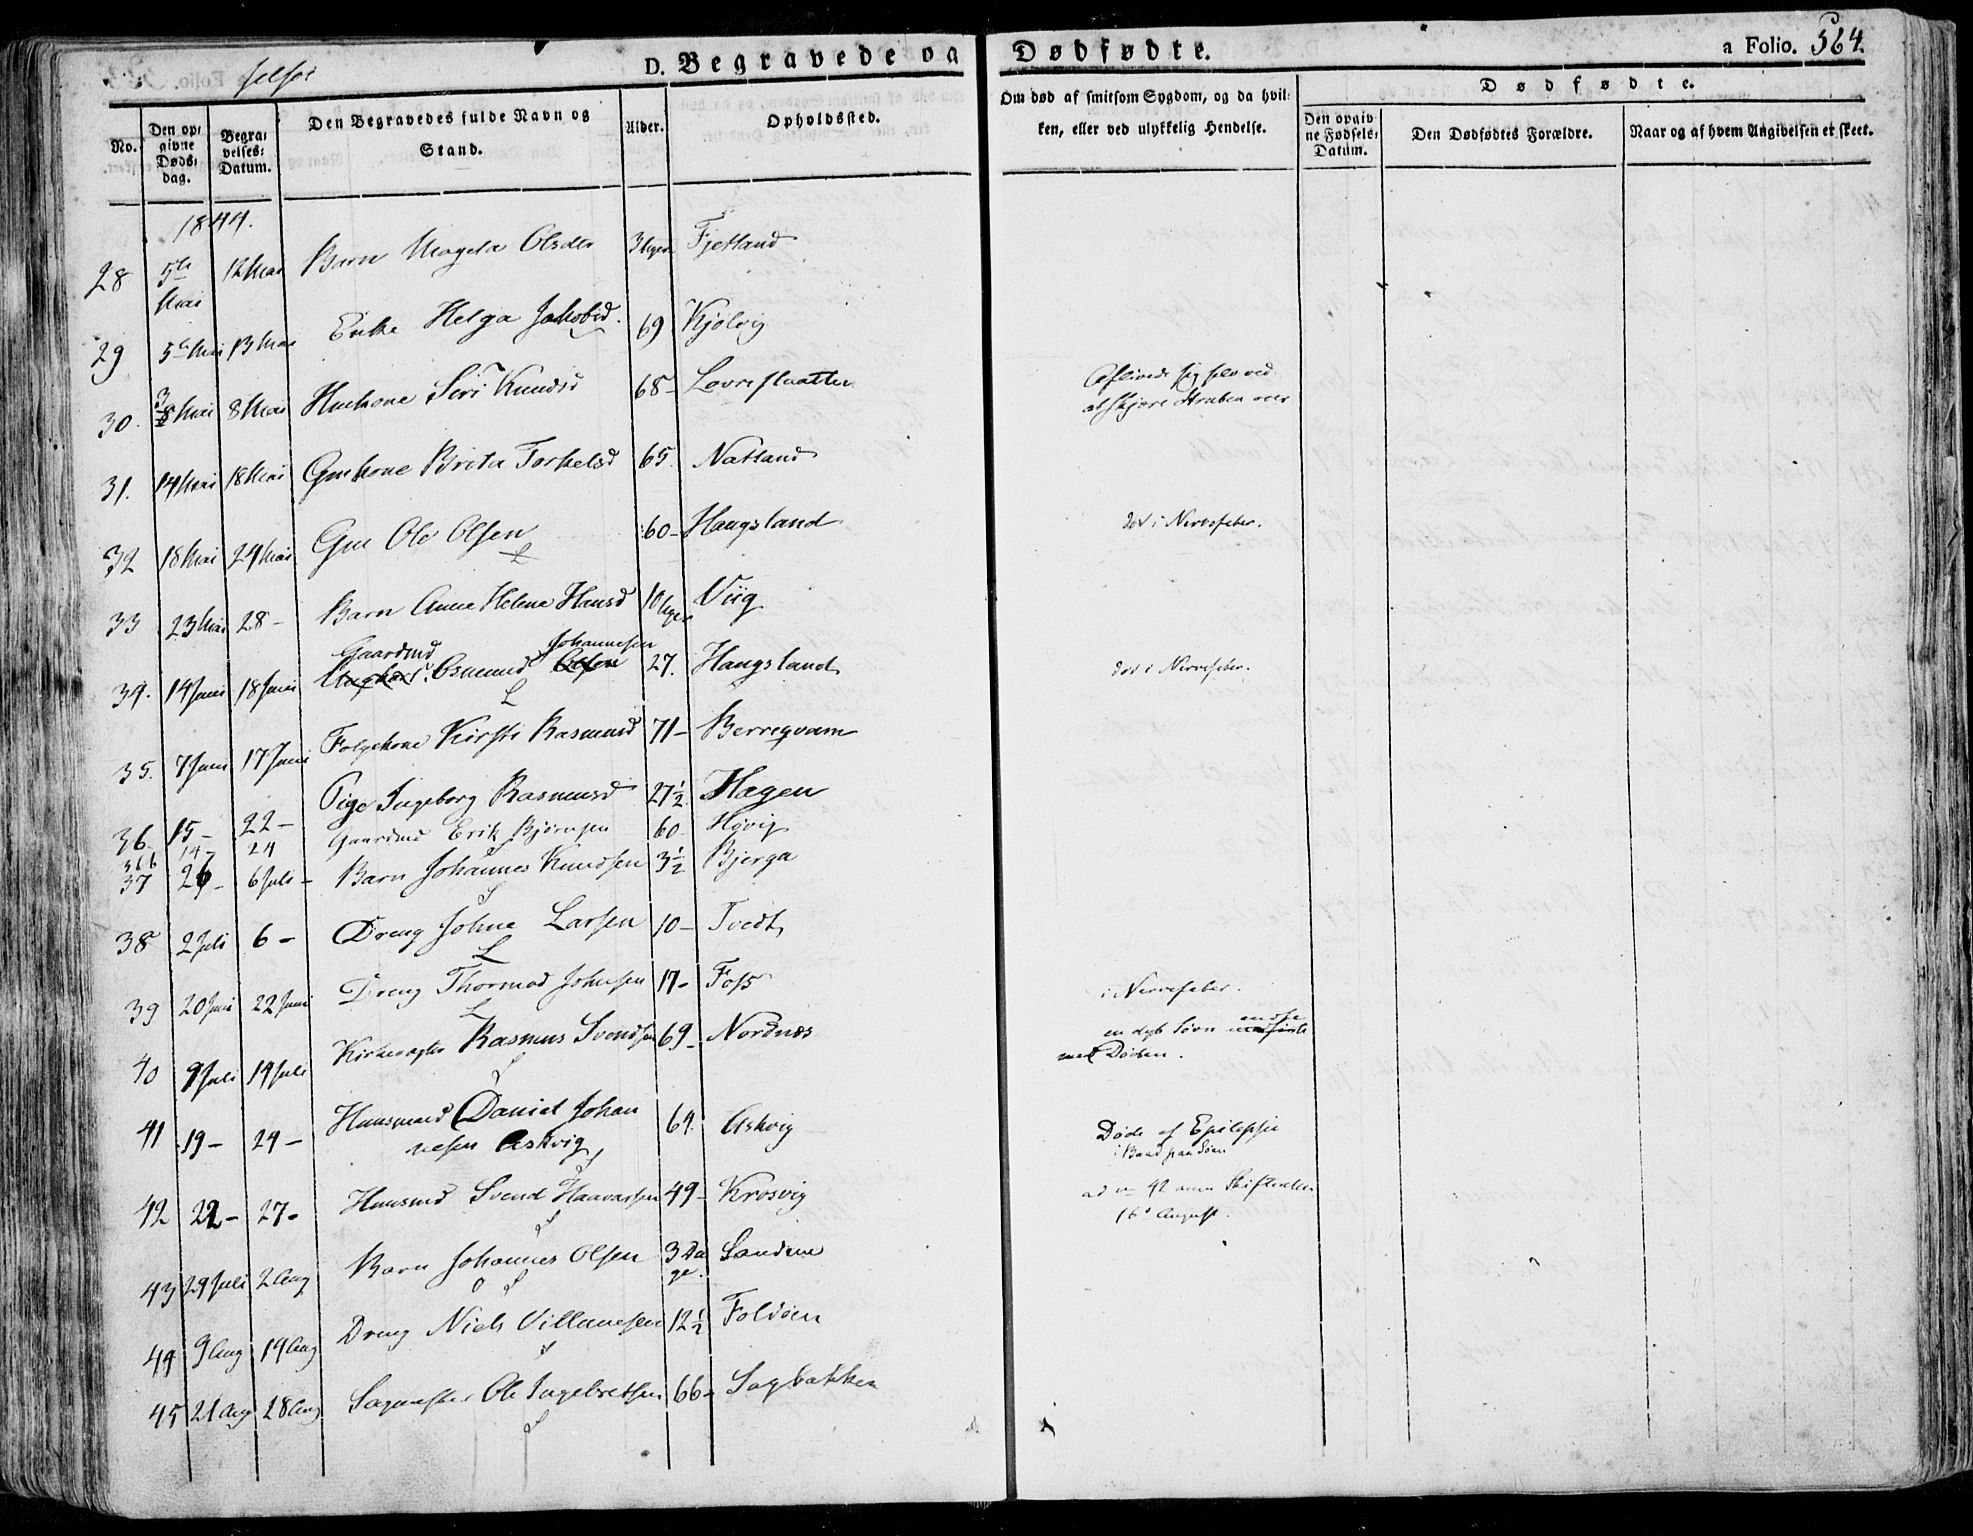 Jelsøe
D. Begravede og Dødfødte.
a Folio. 564.
No.
Den op:
givne
Døds:
dag.
Begra:
velses:
Datum.
Den Begravedes fulde Navn og
Stand.
Alder.
Opholdssted.
Om død af smitsom Sygdom, og da hvil:
ken, eller ved ulykkelig Hendelse.
Dødfødte.
Den opgiv:
ne Fødsels:
Datum.
Den Dødfødtes Forældre.
Naar og af hvem Angivelsen er skeet.
1844.
28 5te Mai 12 Mai Barn Magela Olsdtr 3 Uger Fjetland
29 5te Mai 13 Mai Enke Helga Jakobsd. 69 Kjølvig
30. 3 Mai 8 Mai Huuskone Siri Knudsd 68 - Lovreslaatten
Aflivede sig selv ved
at skjære Struben over
31. 14 Mai 18 Mai Gmkone Brita Torkelsd 65. Natland
32 18 Mai 24 Mai Gm Ole Olsen 60 - Haugsland død i Nervefeber.
33 23 Mai 28 - Barn Anne Helene Hansd 10 Uger Viig
Gaardmd Johannesen
34. 14 Juni 18 Juni Ungkarl Osmund Olsen 27. Haugsland død i Nervefeber.
35. 7 Juni 17 Juni Folgekone Kirsti Rasmusd 71 - Berreqvam
36. 15 - 22 - Pige Ingeborg Rasmusd 27 1/2 Hagen
36b 14 - 24 Gaardmd Erik Bjørnsen 60 Høvig
37 26 - 6 Juli - Barn Johannes Knudsen 3 1/2 Bjerga
38 2 Juli 6 - Dreng Johne Larsen 10 - Tvedt
39 20 Juni 22 Juni Dreng Thormod Johnsen 17 - Foss i Nervefeber.
40 9 Juli 19 Juli Kirkevægter Rasmus Svendsen 69 - Nordnæs
en dyb Søvn endte
med Døden.
41 19 - 24 - Huusmand Daniel Johan
nesen Askvig 64. Askvig
Døde af Epilepsie
i Baad paa Søen
42 22 - 27 - Huusmd Svend Haavarsen 49 - Krosvig
ad no 42 anm Skifteretten
16 August.
43 29 Juli 2 Aug Barn Johannes Olsen 3 Da
ge. Sandene
44 9 Aug 19 Aug Dreng Niels Villumsen 12 1/2 Foldøen
45 21 Aug 28 Aug Sagmester Ole Ingebretsen 66 - Sagbakken